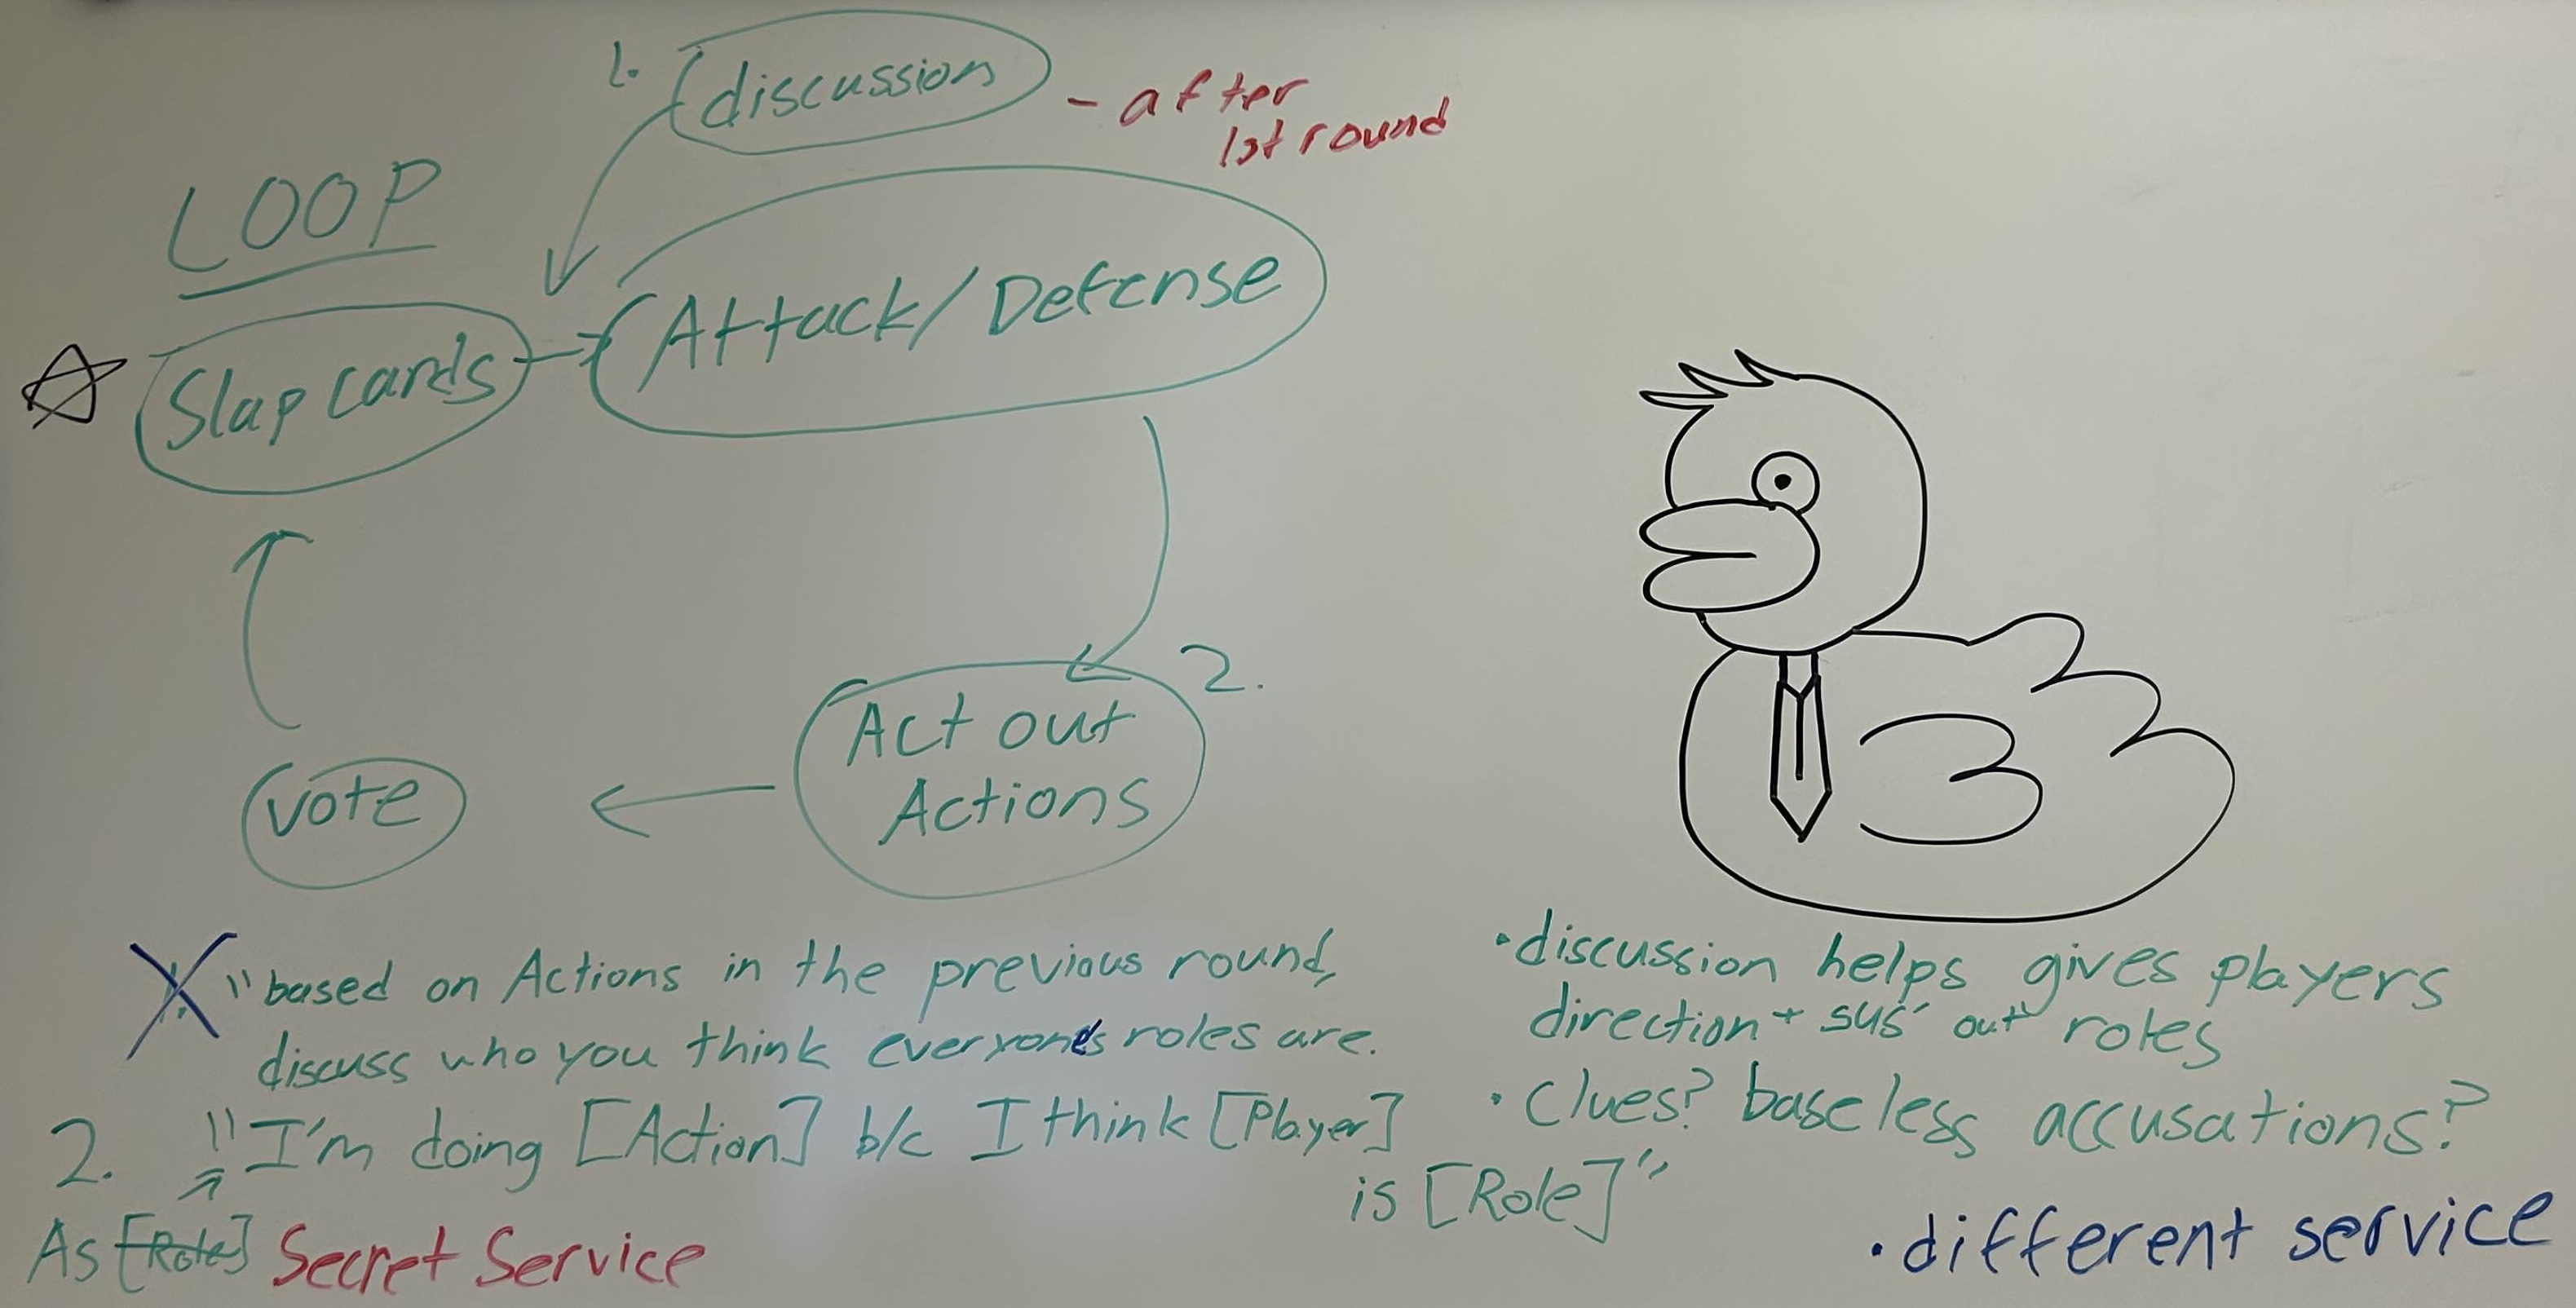 1. discussion
- after
1st round
LOOP
Slap cards
Attack/Defense
2.
Act out
Actions
vote
"based on Actions in the previous round,
discuss who you think everyone's roles are.
2. "I'm doing [Action] b/c I think [Player]
is [Role]"
As [Role] Secret Service
• discussion helps gives players
direction + "sus out" roles
• Clues? baseless accusations?
• different service